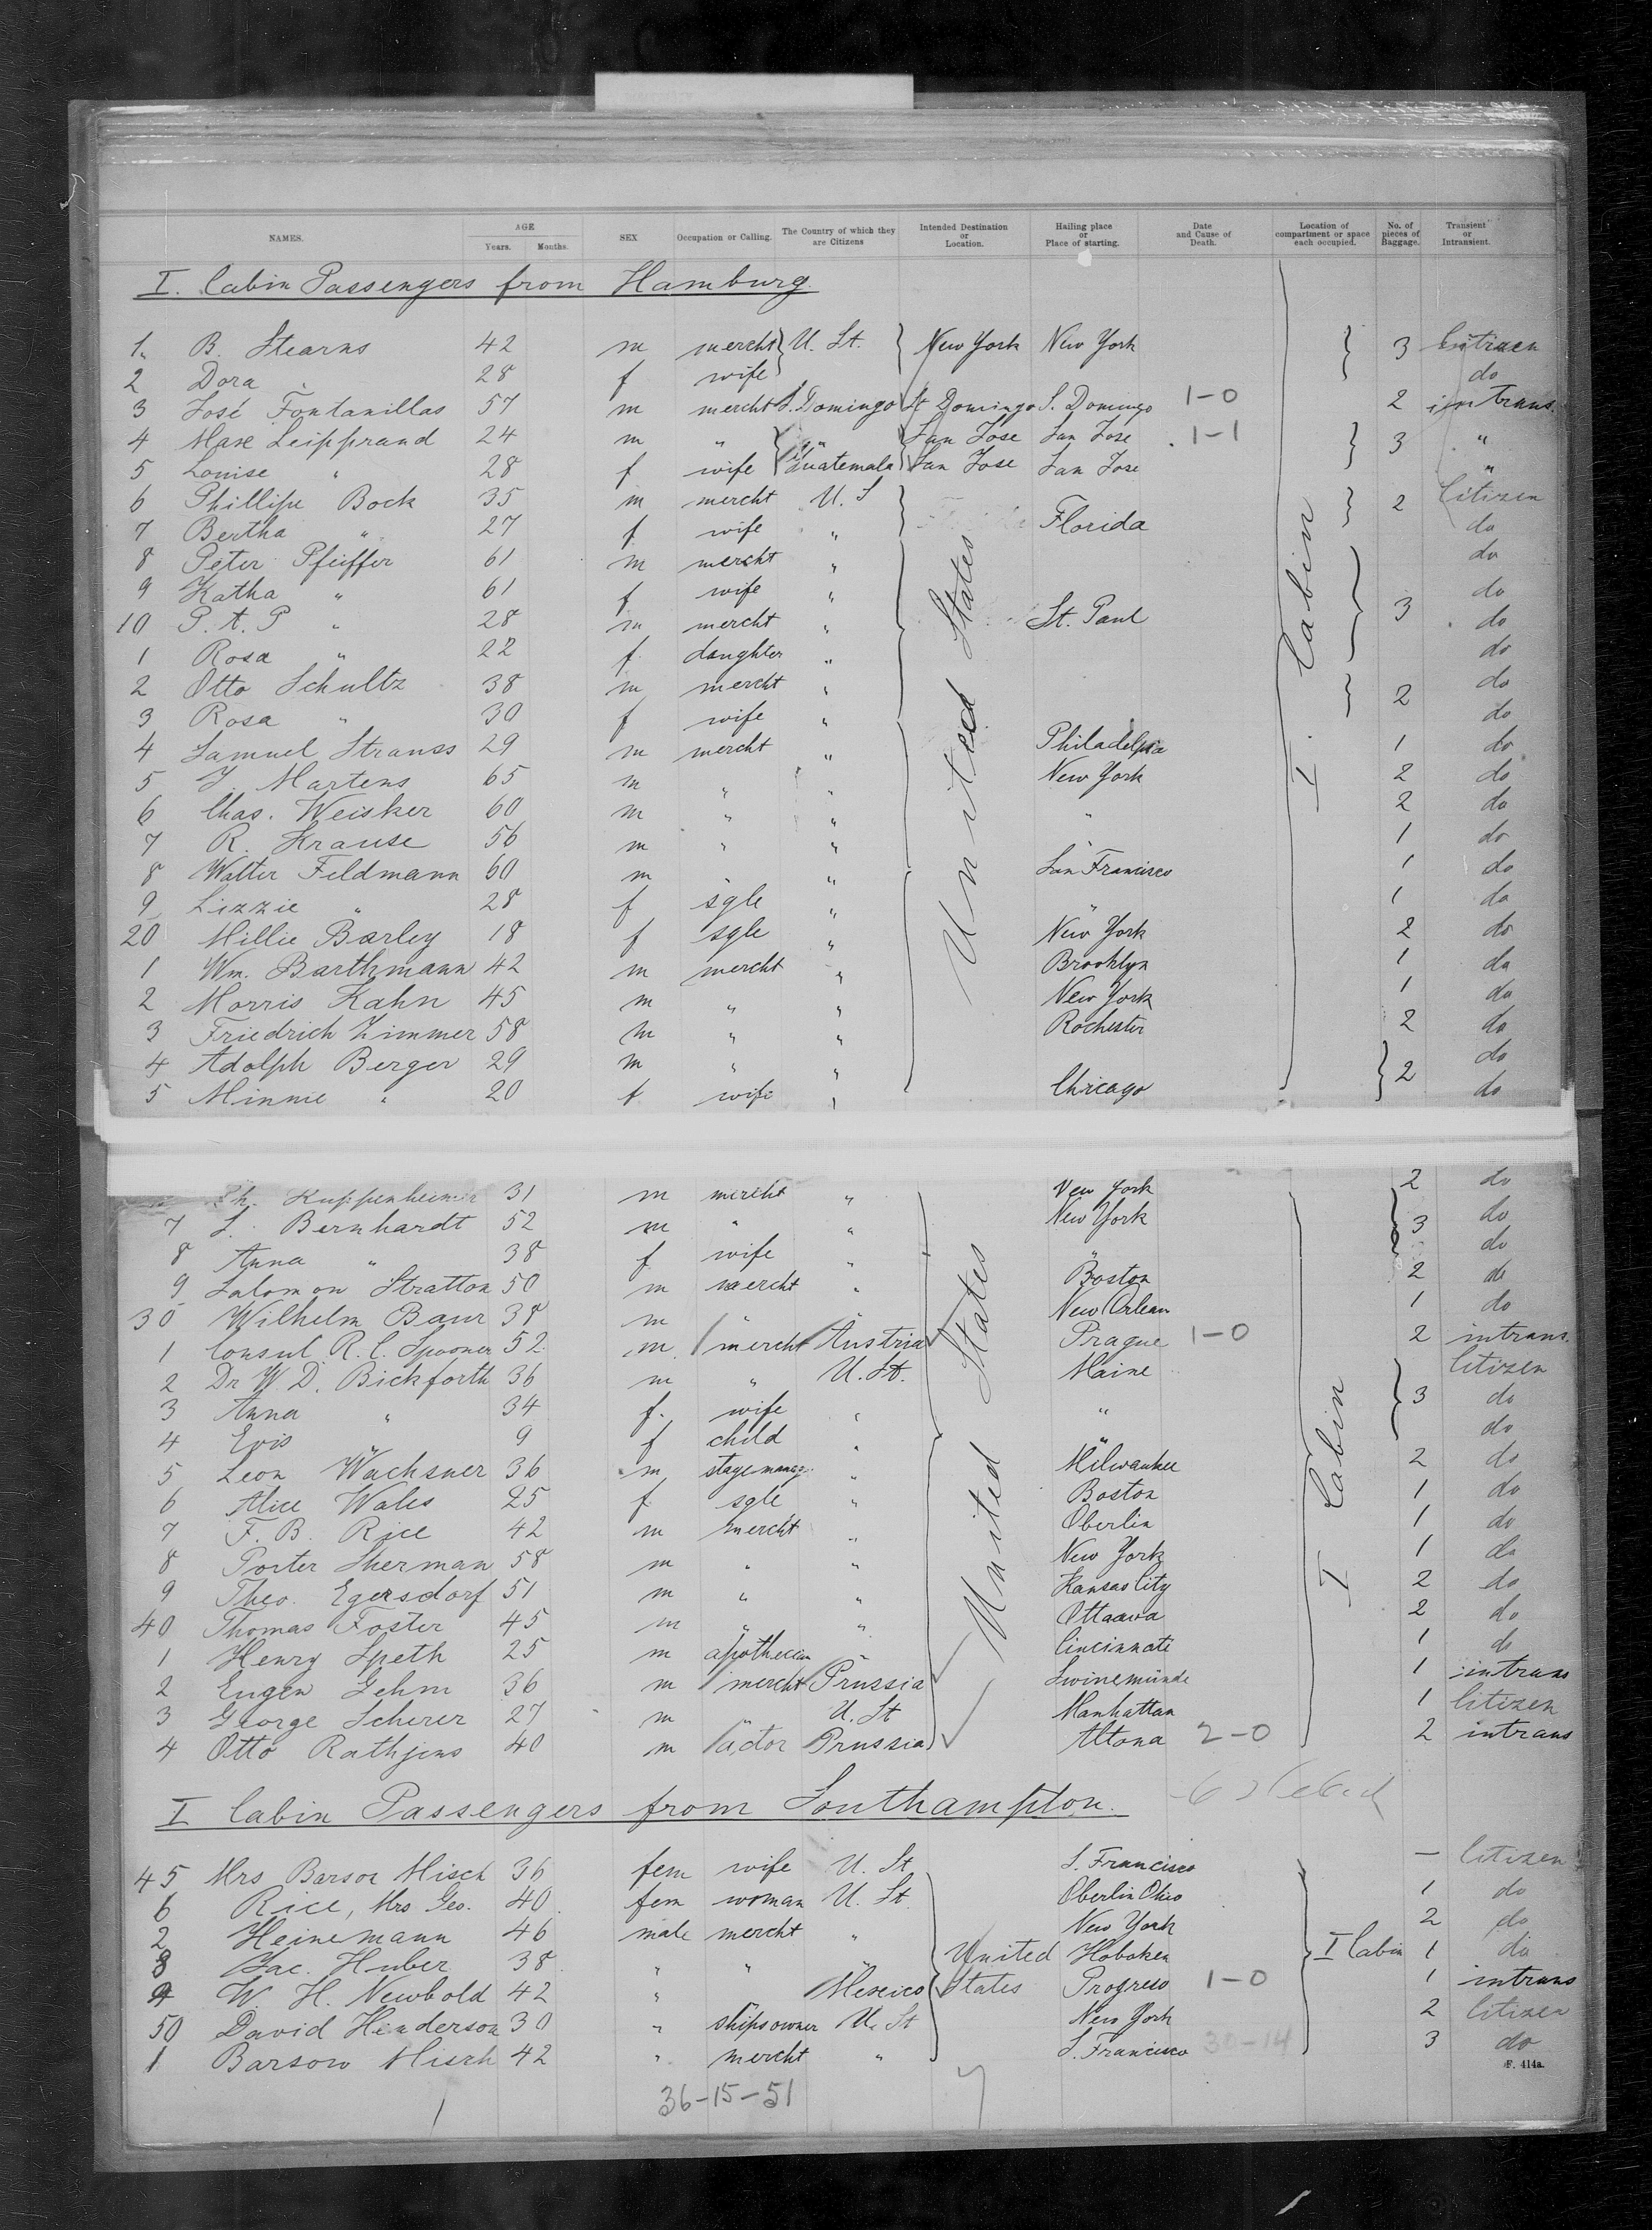 NAMES. AGE Years. Months. SEX Occupation or Calling. The Country of which they are Citizens Intended Destination or Location. Hailing place or Place of starting. Date and Cause of Death. Location of compartment or space each occupied. No. of pieces of Baggage. Transient or Intransient.
I. Cabin Passengers from Hamburg
1. B. Stearns 42 m mercht U. St. New York New York 3 Citizen
2 Dora " 28 f wife do
3 José Fontanillas 57 m mercht S. Domingo St Domingo S. Domingo 1-0 2 intrans.
4 Max Leipprand 24 m " " San Jose San Jose 1-1 3 "
5 Louise " 28 f wife Guatemala San Jose San Jose "
6 Phillipe Bock 35 m mercht U. S 2 Citizen
7 Bertha " 27 f wife " Florida do
8 Peter Pfeiffer 61 m mercht " do
9 Katha " 61 f wife " do
10 P. A. P " 28 m mercht " St. Paul 3 do
1 Rosa " 22 f. daughter " do
2 Otto Schultz 38 m mercht " 2 do
3 Rosa " 30 f wife " do
4 Samuel Strauss 29 m mercht " Philadelpia 1 do
5 J. Martens 65 m " " New York 2 do
6 Chas. Weisker 60 m " " " 2 do
7 R. Krause 56 m " " " 1 do
8 Walter Feldmann 60 m " " San Francisco 1 do
9 Lizzie " 28 f sgle " " 1 do
20 Millie Barley 18 f sgle " New York 2 do
1 Wm. Barthmann 42 m mercht " Brooklyn 1 do
2 Morris Kahn 45 m " " New York 1 do
3 Friedrich Zimmer 58 m " " Rochester 2 do
4 Adolph Berger 29 m " " 2 do
5 Minnie " 20 f wife " Chicago do
United States
I. Cabin
Kuppenheimer 31 m mercht " New York 2 do
7 S. Bernhardt 52 m " " New York 3 do
8 Anna " 38 f wife " " do
9 Salomon Stratton 50 m mercht " Boston 2 do
30 Wilhelm Baur 38 m " " New Orlean 1 do
1 Consul R. C. Spooner 52. m. mercht Austria Prague 1-0 2 intrans.
2 Dr W. D. Bickforth 36 m " U. St. Maine Citizen
3 Anna " 34 f. wife " " 3 do
4 Evis " 9 f child " " do
5 Leon Wachsner 36 m stage manag. " Milwaukee 2 do
6 Alice Wales 25 f sgle " Boston 1 do
7 F. B. Rice 42 m mercht " Oberlin 1 do
8 Porter Sherman 58 m " " New York 1 do
9 Theo. Egersdorf 51 m " " Kansas City 2 do
40 Thomas Foster 45 m " " Ottaawa 2 do
1 Henry Speth 25 m apothecian " Cincinnati 1 do
2 Eugen Gehm 36 m mercht Prussia Swinemünde 1 intrans
3 George Scherer 27 m " U. St Manhattan 1 Citizen
4 Otto Rathjens 40 m actor Prussia Altona 2-0 2 intrans
United States
I Cabin
I Cabin Passengers from Southampton.
45 Mrs Barsor Misch 36 fem wife U. St S. Francisco — Citizen
6 Rice, Mrs Geo. 40 fem woman U. St Oberlin Ohio 1 do
2 Heinemann 46 male mercht " New York 2 do
8 Jac. Huber 38 " " " United Hoboken I Cabin 1 do
9 W. H. Newbold 42 " Mexico States Progreso 1-0 1 intrans
50 David Henderson 30 " shipsowner U. St New York 2 Citizen
1 Barsow Misch 42 " mercht " S. Francisco 30-14 3 do
F. 414a.
36-15-51